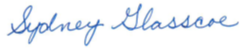 Sydney Glasscoe